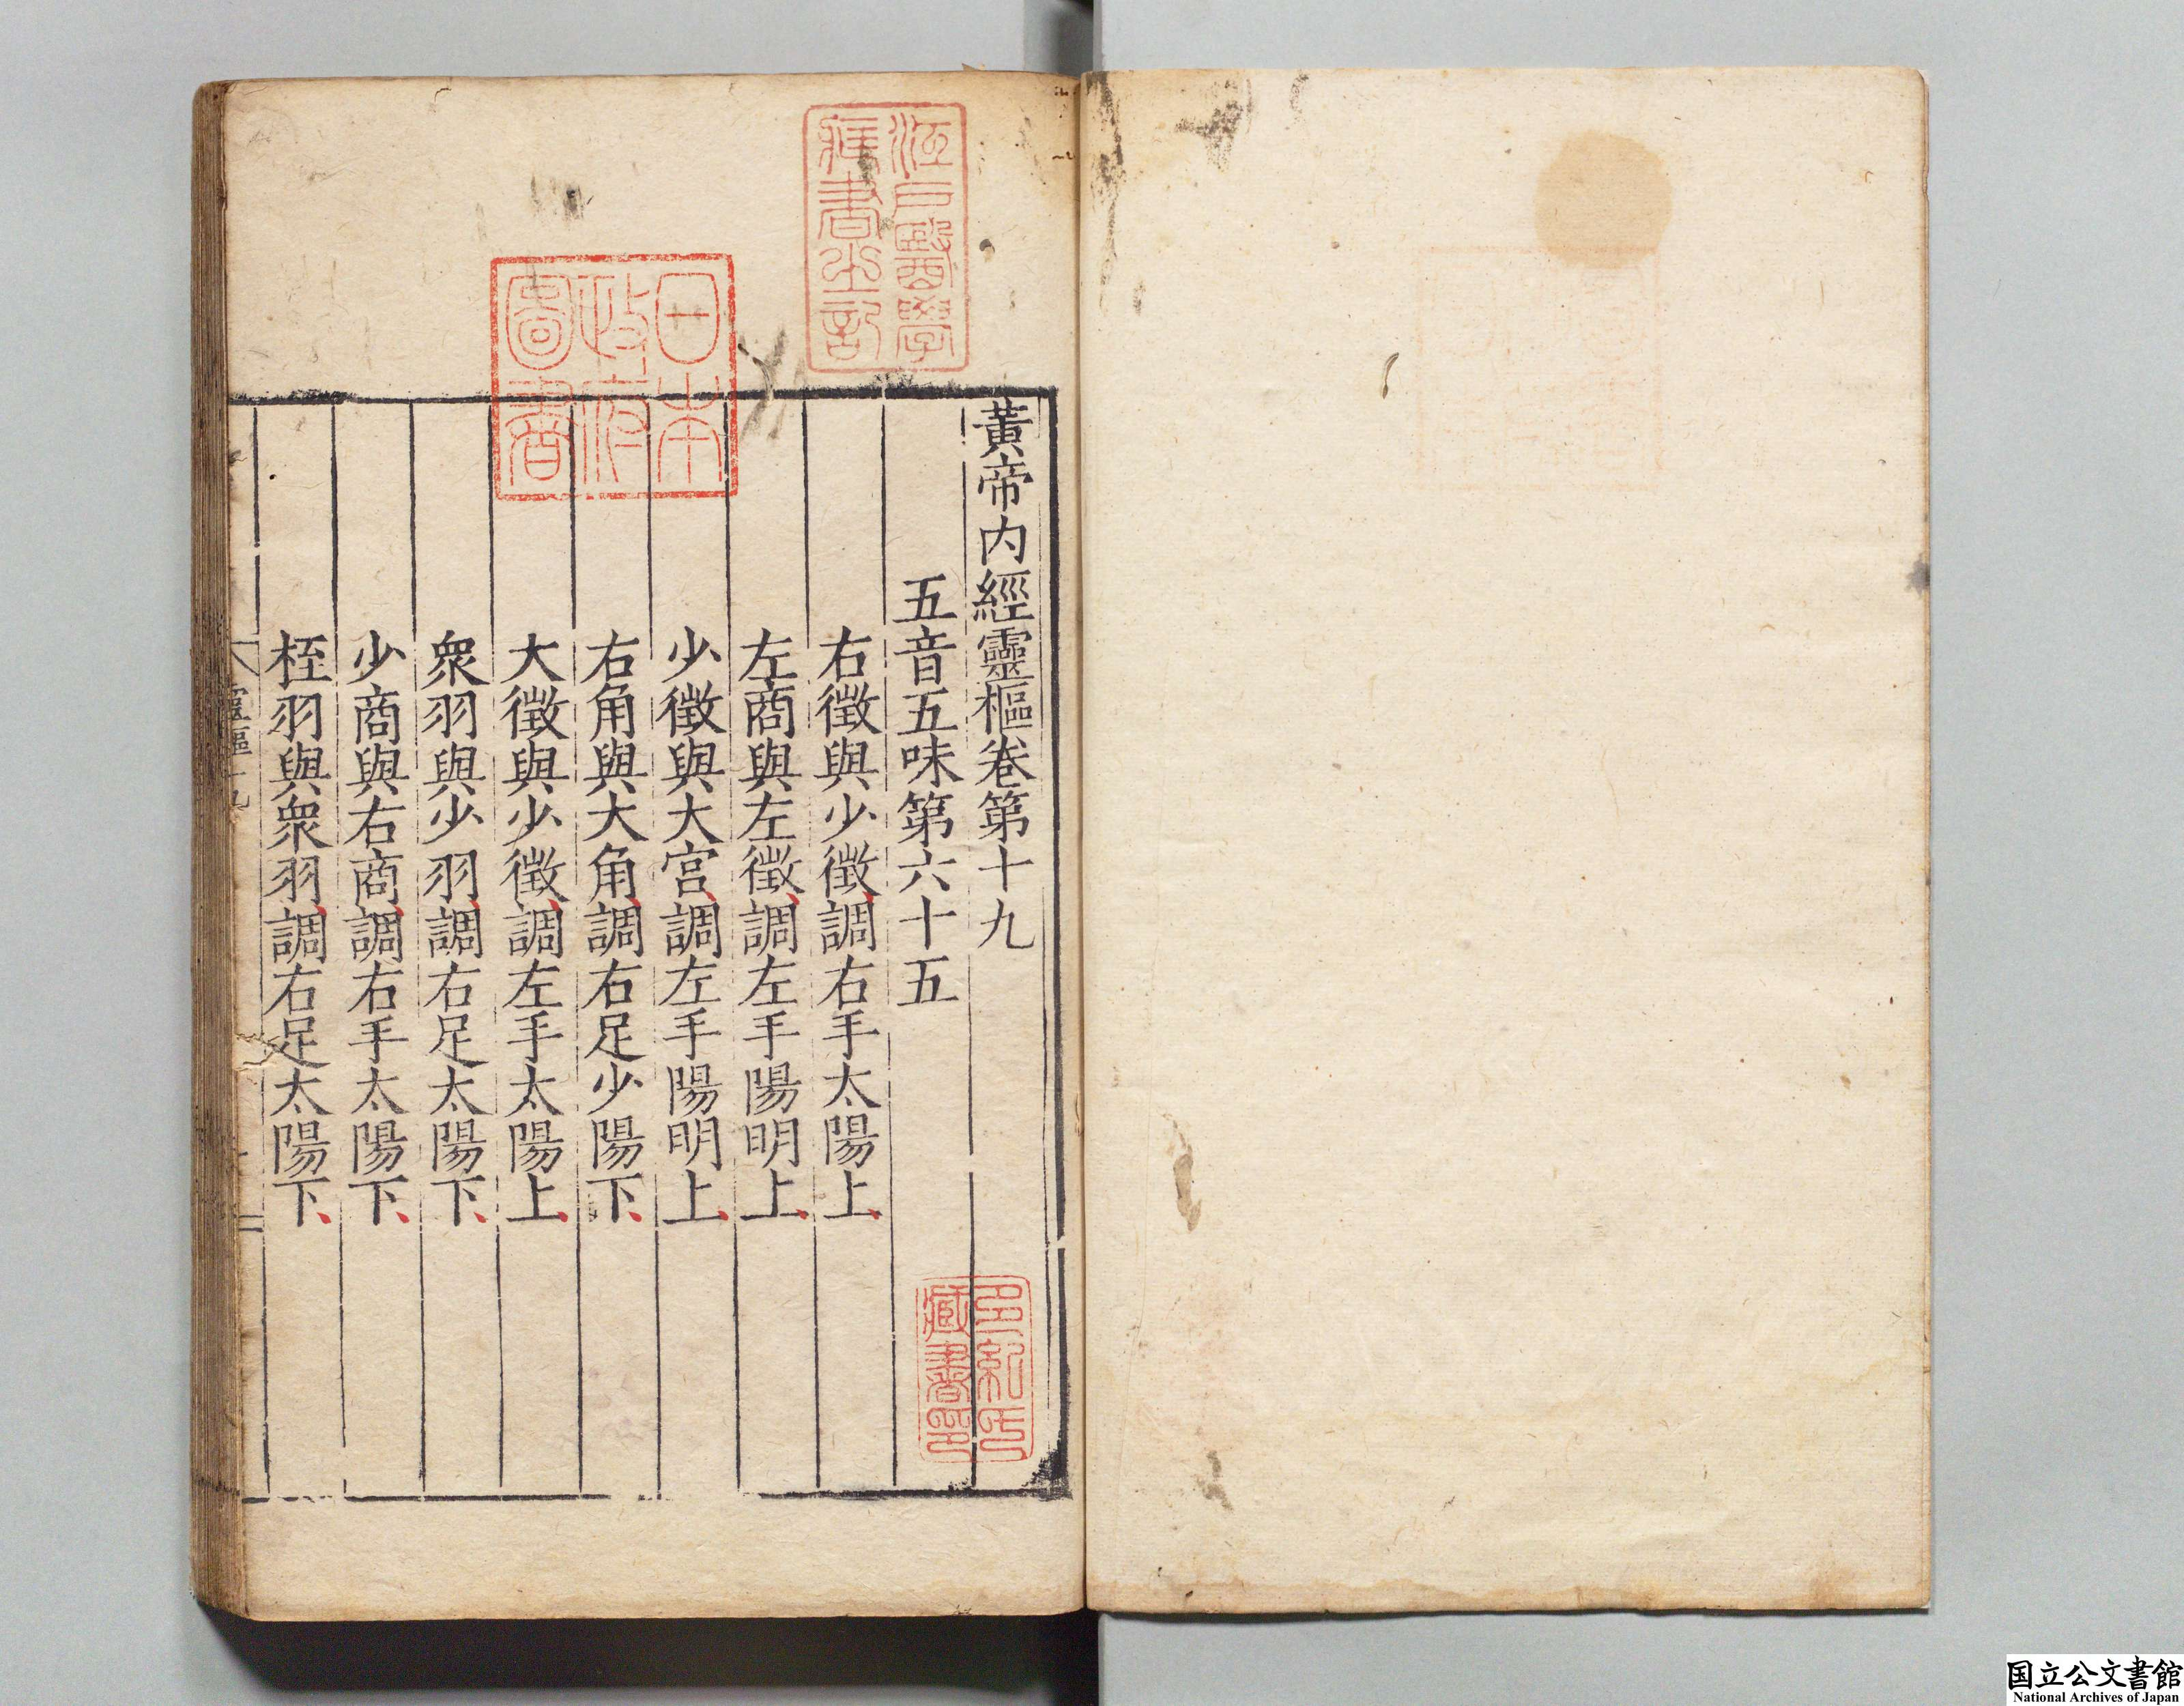 黃帝内經靈樞卷第十九
五音五味第六十五
右徵與少徵調右手太陽上
左商與左徵調左手陽明上
少徵與大宮調左手陽明上
右角與大角調右足少陽下
大徵與少徵調左手太陽上
衆羽與少羽調右足太陽下
少商與右商調右手太陽下
桎羽與衆羽調右足太陽下
靈樞十九
江戸醫學
藏書之記
日本
政府
圖書
多紀氏
藏書印
国立公文書館
National Archives of Japan